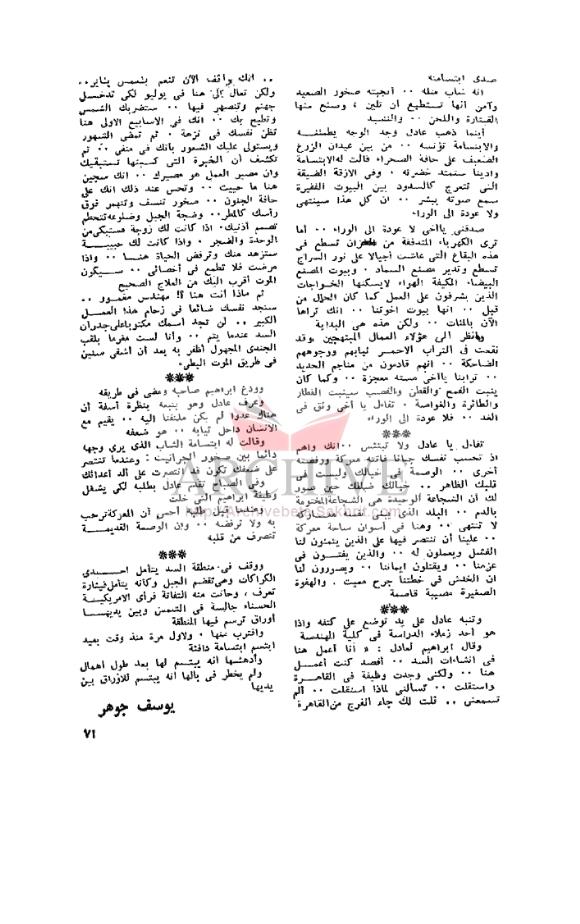 صدى ابتسامته
انه شاب مثله ٠٠ أنجبته صخور الصعيد
وآمن انها تستطيع أن تلين ، وصنع منها
القيثارة واللحن ٠٠ والنشيد
أينما ذهب عادل وجد الوجه يطمئنه
والابتسامة تؤنسه ٠٠ من بين عيدان الزرع
الضعيف على حافة الصحراء قالت له الابتسامة
وادينا ستمتد خضرته ٠ وفي الازقة الضيقة
التي تتعرج كالسدود بين البيوت الفقيرة
سمع صوته يبشر ٠٠ ان كل هذا سينتهي
ولا عودة الى الوراء
صدقني يا أخي لا عودة الى الوراء ٠٠ أما
ترى الكهرباء المتدفقة من خزان تسطع في
هذه البقاع التي عاشت أجيالا على نور السراج
تسطع وتدير مصنع السماد ٠ وبيوت المصنع
البيضاء المكيفة الهواء لا يسكنها الخواجات
الذين يشرفون على العمل كما كان الحال من
قبل ٠٠ انها بيوت اخوتنا ٠٠ انك تراها
الآن بالمئات ٠٠ ولكن هذه هي البداية
وانظر الى هؤلاء العمال المبتهجين وقد
نقعت في التراب الاحمر ثيابهم ووجوههم
الضاحكة ٠٠ انهم قادمون من مناجم الحديد
٠٠ ترابنا يا أخي مسته معجزة ٠٠ وكما كان
ينبت القمح والقطن والقصب سينبت القطار
والطائرة والغواصة ٠ تفاءل يا أخي وثق في
الغد ٠٠ فلا عودة الى الوراء
***
تفاءل يا عادل ولا تبتئس ٠٠ انك واهم
اذ تحسب نفسك جبانا فاتته معركة ورفضته
أخرى ٠٠ الوصمة في خيالك وليست في
قلبك الظاهر ٠٠ خيالك ضللك حين صور
لك أن الشجاعة الوحيدة هي الشجاعة المختومة
بالدم ٠٠ البلد الذي يبني نفسه معاركه
لا تنتهي ٠٠ وهنا في أسوان ساحة معركة
٠٠ علينا أن ننتصر فيها على الذين يتمنون لنا
الفشل ويعملون له ٠٠ والذين يفتون في
عزمنا ٠٠ ويقتلون ايماننا ٠٠ ويصورون لنا
ان الخدش في خطتنا جرح مميت ٠ والهفوة
الصغيرة مصيبة قاصمة
***
وتنبه عادل على يد توضع على كتفه واذا
هو أحد زملاء الدراسة في كلية الهندسة
وقال ابراهيم لعادل : « أنا أعمل هنا
في انشاءات السد ٠٠ أقصد كنت أعمل
هنا ٠٠ ولكني وجدت وظيفة في القاهرة
واستقلت ٠٠ تسألني لماذا استقلت ٠٠ ألم
تسمعني ٠٠ قلت لك جاء الفرج من القاهرة
٠٠ انك واقف الآن تنعم بشمس يناير ٠٠
ولكن تعال الى هنا في يوليو لكي تدخل
جهنم وتنصهر فيها ٠٠ ستضربك الشمس
وتطيح بك ٠٠ انك في الاسابيع الاولى هنا
تظن نفسك في نزهة ٠ ثم تمضي الشهور
ويستولي عليك الشعور بأنك في منفى ٠٠ ثم
تكتشف أن الخبرة التي كسبتها تستبقيك
وان مصير العمل هو مصيرك ٠٠ انك سجين
هنا ما حييت ٠٠ وتحس عند ذلك انك على
حافة الجنون ٠٠ صخور تنسف وتنهمر فوق
رأسك كالمطر ٠٠ وضجة الجبل وضلوعه تتحطم
تصمم أذنيك ٠ اذا كانت لك زوجة فستبكي من
الوحدة والضجر ٠ واذا كانت لك حبيبة
ستزهد منك وترفض الحياة هنا ٠٠ واذا
مرضت فلا تطمع في أخصائي ٠٠ سيكون
الموت أقرب اليك من العلاج الصحيح
ثم ماذا أنت هنا ؟! مهندس مغمور ٠٠
ستجد نفسك ضائعا في زحام هذا العمل
الكبير ٠٠ لن تجد اسمك مكتوبا على جدران
السد عندما يتم ٠٠ وأنا لست مغرما بلقب
الجندي المجهول أظفر به بعد أن أشقى سنين
في طريق الموت البطيء
***
وودع ابراهيم صاحبه ومضى في طريقه
وعرف عادل وهو يتبعه بنظرة آسفة أن
هناك عدوا لم يكن ملتفتا اليه ٠٠ يقيم مع
الانسان داخل ثيابه ٠٠ هو ضعفه
وقالت له ابتسامة الشاب الذي يرى وجهه
دائما بين صخور الجرانيت : وعندما تنتصر
على ضعفك تكون قد انتصرت على ألد أعدائك
وفي نفس اليوم تقدم عادل بطلبه لكي يشغل
وظيفة ابراهيم التي خلت
وعندما قبل طلبه أحس أن المعركة ترحب
به ولا ترفضه ٠٠ وان الوصمة القديمة
تنصرف من قلبه
***
ووقف في منطقة السد يتأمل احدى
الكراكات وهي تقضم الجبل وكأنه يتأمل قيثارة
تعزف ، وحانت منه التفاتة فرأى الامريكية
الحسناء جالسة في الشمس وبين يديها
أوراق ترسم فيها المنطقة
واقترب منها ٠ ولاول مرة منذ وقت بعيد
ابتسم ابتسامة دافئة
وأدهشها أنه يبتسم لها بعد طول اهمال
ولم يخطر في بالها أنه يبتسم للأوراق بين
يديها
يوسف جوهر
٧١
ARCHIVE
http://Archivebeta.Sakhrit.com